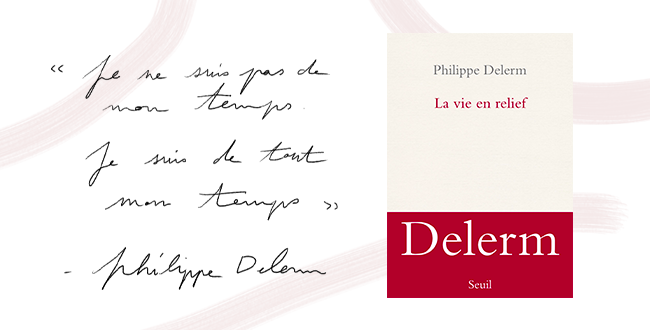 « Je ne suis pas de
mon temps.
Je suis de tout
mon temps »
- Philippe Delerm
Philippe Delerm
La vie en relief
Delerm
Seuil